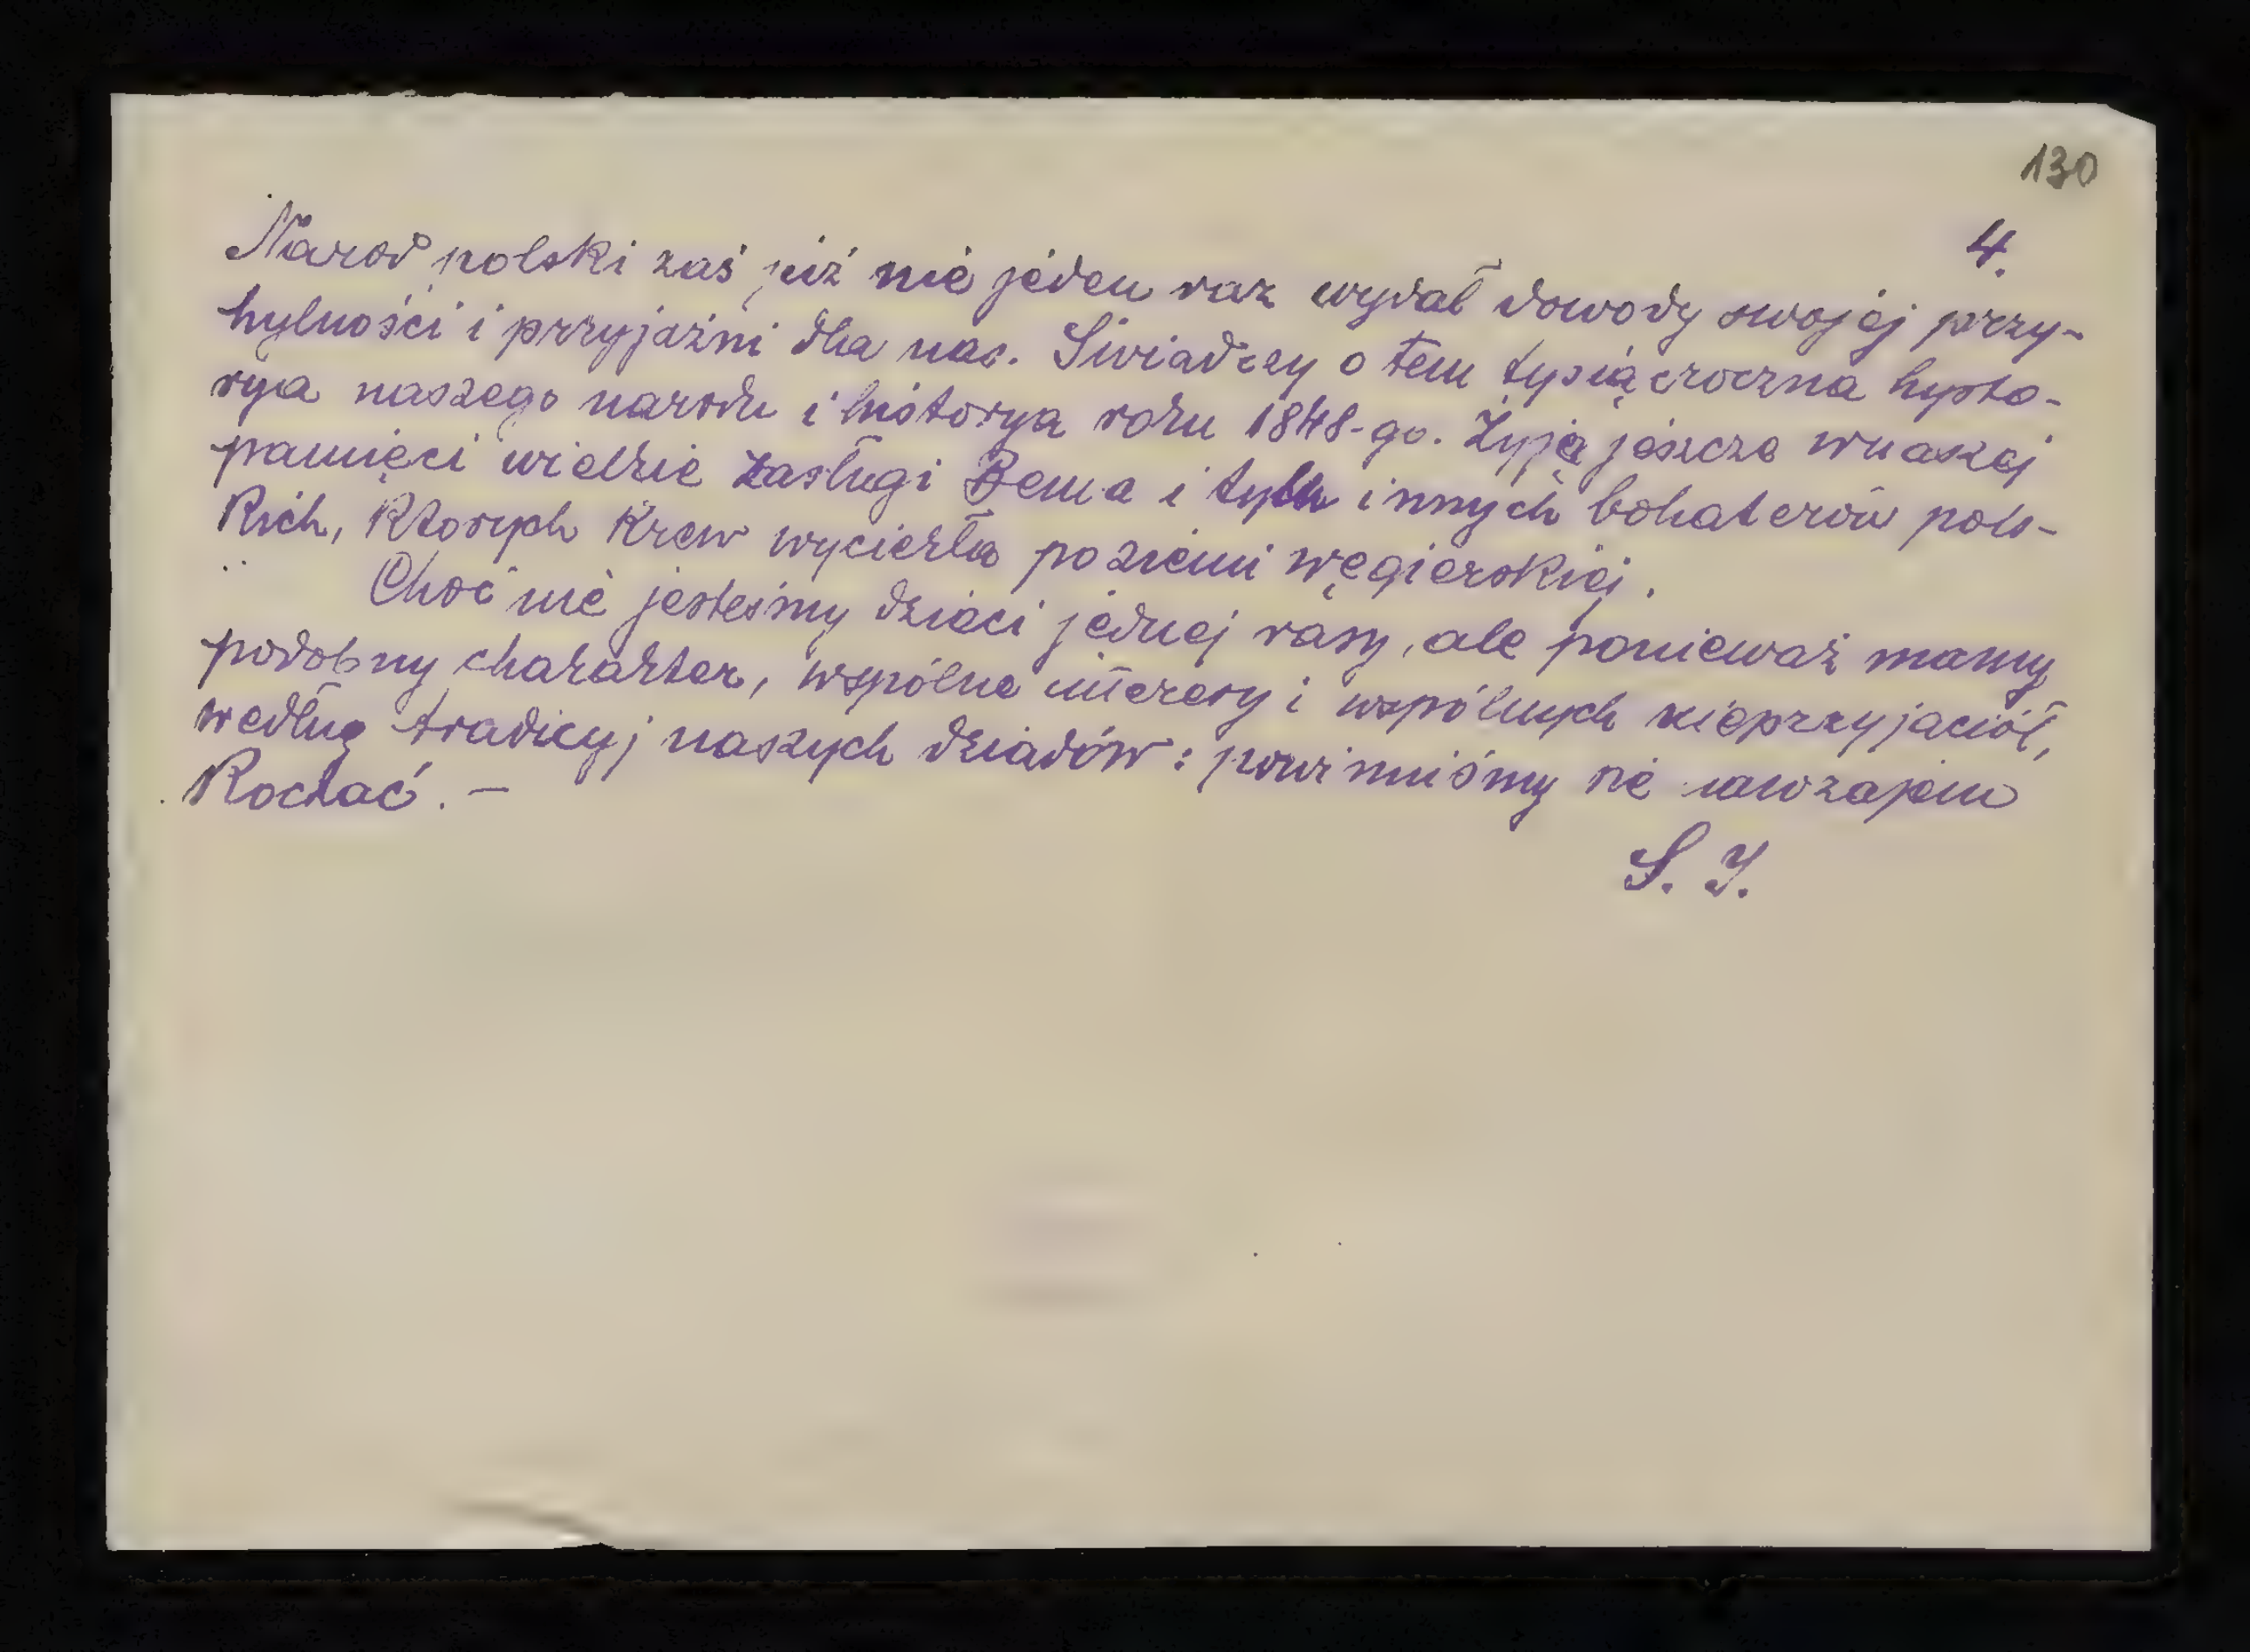 130
4.
Narod polski zaś już nie jeden raz wydał dowody swojej przy-
hylności i przyjaźni dla nas. Swiadczy o tem tysiącroczna hysto-
rya naszego narodu i history̨a roku 1848-go. Żyją jeszcze w naszej
pamięci wielkie zasługi Bema i tylu innych bohaterów pols-
kich, ktorych krew wyciekła po ziemi węgierskiej.
Choć nie jesteśmy dzieci jednej rasy, ale ponieważ mamy
podobny charakter, wspólne interesy i wspólnych nieprzyjaciół,
według tradicyj naszych dziadów: powinniśmy się nawzajem
kochać. —
S. I.